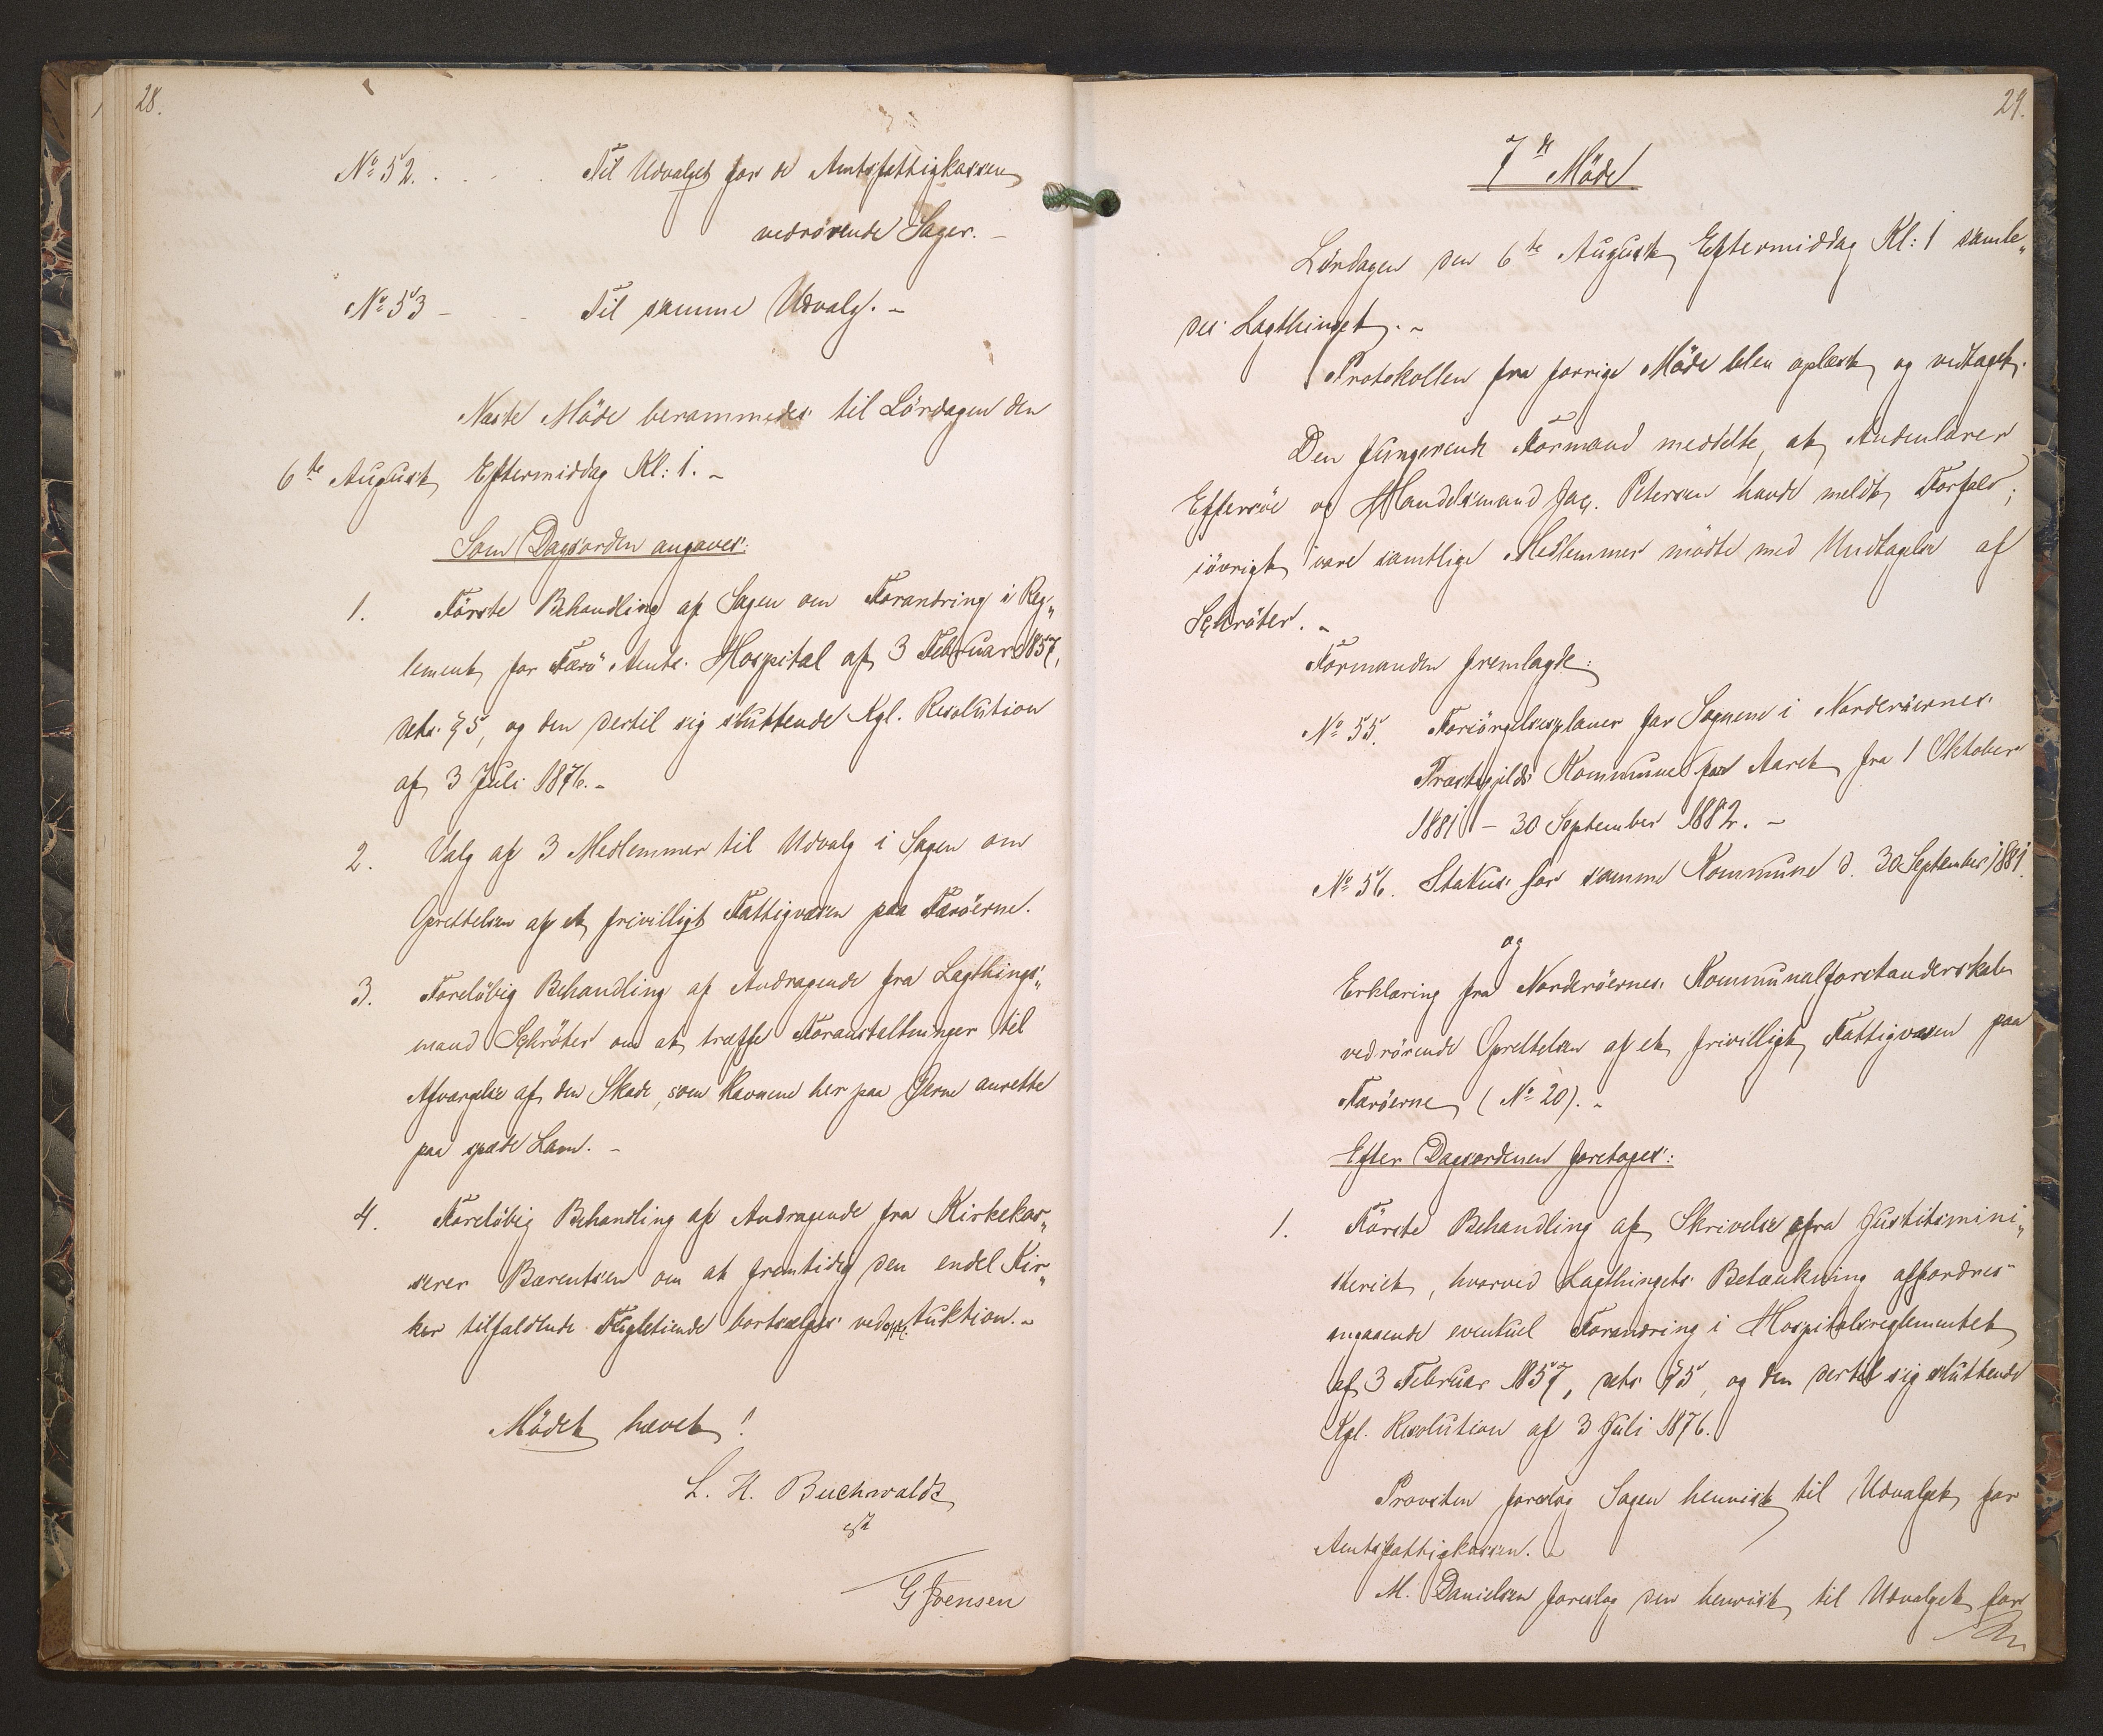 28.
No 52. . . . . Til Udvalget for de Amtsfattigkassen
vedrørende Sager. –
No 53 – . . Til samme Udvalg. –
Næste Möde berammedes til Lördagen den
6te August Eftermiddag Kl: 1. –
Som Dagsorden angaves:
1. Förste Behandling af Sagen om Forandring i Reg„
lement for Færö Amts Hospital af 3 Februar 1857,
dets § 5, og den dertil sig sluttende Kgl. Resolution
af 3 Juli 1876. –
2. Valg af 3 Medlemmer til Udvalg i Sagen om
Oprettelsen af et frivilligt Fattigvæsen paa Færöerne.
3. Forelöbig Behandling af Andragende fra Lagthings„
mand Schröter om at træffe Foranstaltninger til
Afværgelse af den Skade, som Ravnene her paa Øerne anrette
paa spæde Lam. –
4. Forelöbig Behandling af Andragende fra Kirkekas„
serer Bærentsen om at fremtidig den endel Kir„
ker tilfaldende Fugletiende bortsælges ved off. Auktion. –
Mödet hævet!
L. H. Buchwaldt
cst
G Joensen
29.
7de Möde
Lördagen den 6te August Eftermiddag Kl: 1 samle„
des Lagthinget. –
Protokollen fra forrige Möde blev oplæst og vedtaget.
Den fungerende Formand meddelte, at Andenlærer
Effersöe og Handelsmand Jac. Petersen havde meldt Forfald;
iövrigt vare samtlige Medlemmer mödte med Undtagelse af
Schröter. –
Formanden fremlagde:
No 55. Forsörgelsesplaner for Sognene i Norderöernes
Præstegjelds Kommune for Aaret fra 1 Oktober
1881 – 30 September 1882. –
No 56. Status for samme Kommune d. 30 September 1881.
og
Erklæring fra Norderöernes Kommunalforstanderskab
vedrörende Oprettelsen af et frivilligt Fattigvæsen paa
Færöerne (No 20). –
Efter Dagsordenen foretoges:
1. Förste Behandling af Skrivelse fra Justitsmini„
steriet, hvorved Lagthingets Betænkning affordres
angaaende eventuel Forandring i Hospitalsreglementet
af 3 Februar 1857, dets § 5, og den dertil sig sluttende
Kgl. Resolution af 3 Juli 1876.
Provsten foreslog Sagen henvist til Udvalget for
Amtsfattigkassen. –
M. Danielsen foreslog den henvist til Udvalget for